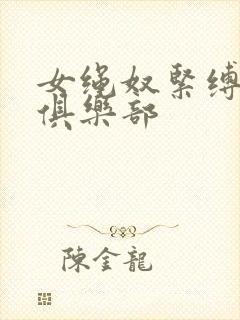 女绳奴緊缚
俱樂部
陳金龍